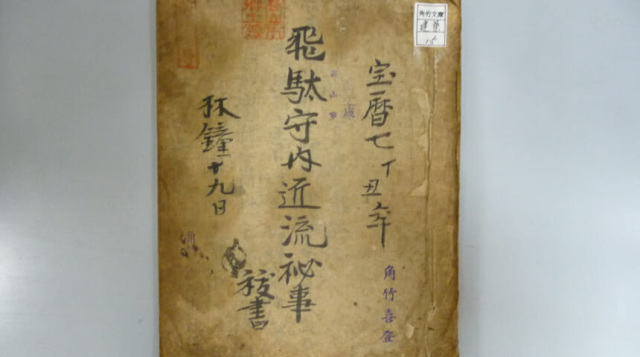 宝暦七丁丑年
飛騨守内近流秘事
林鐘十九日
秘書
角竹喜登
角竹文庫
建築